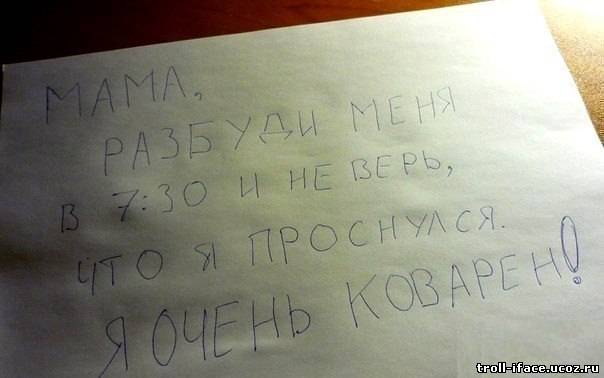 МАМА,
РАЗБУДИ МЕНЯ
В 7:30 И НЕ ВЕРЬ,
ЧТО Я ПРОСНУЛСЯ.
Я ОЧЕНЬ КОВАРЕН!
troll-iface.ucoz.ru